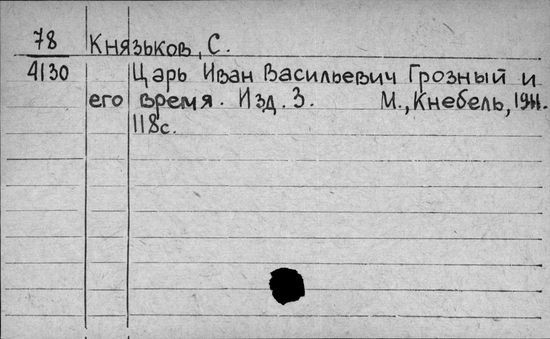 78 Князьков, С.
4130 Царь Иван Васильевич Грозный и
его время. Изд. 3. М., Кнебель, 1911.
118с.